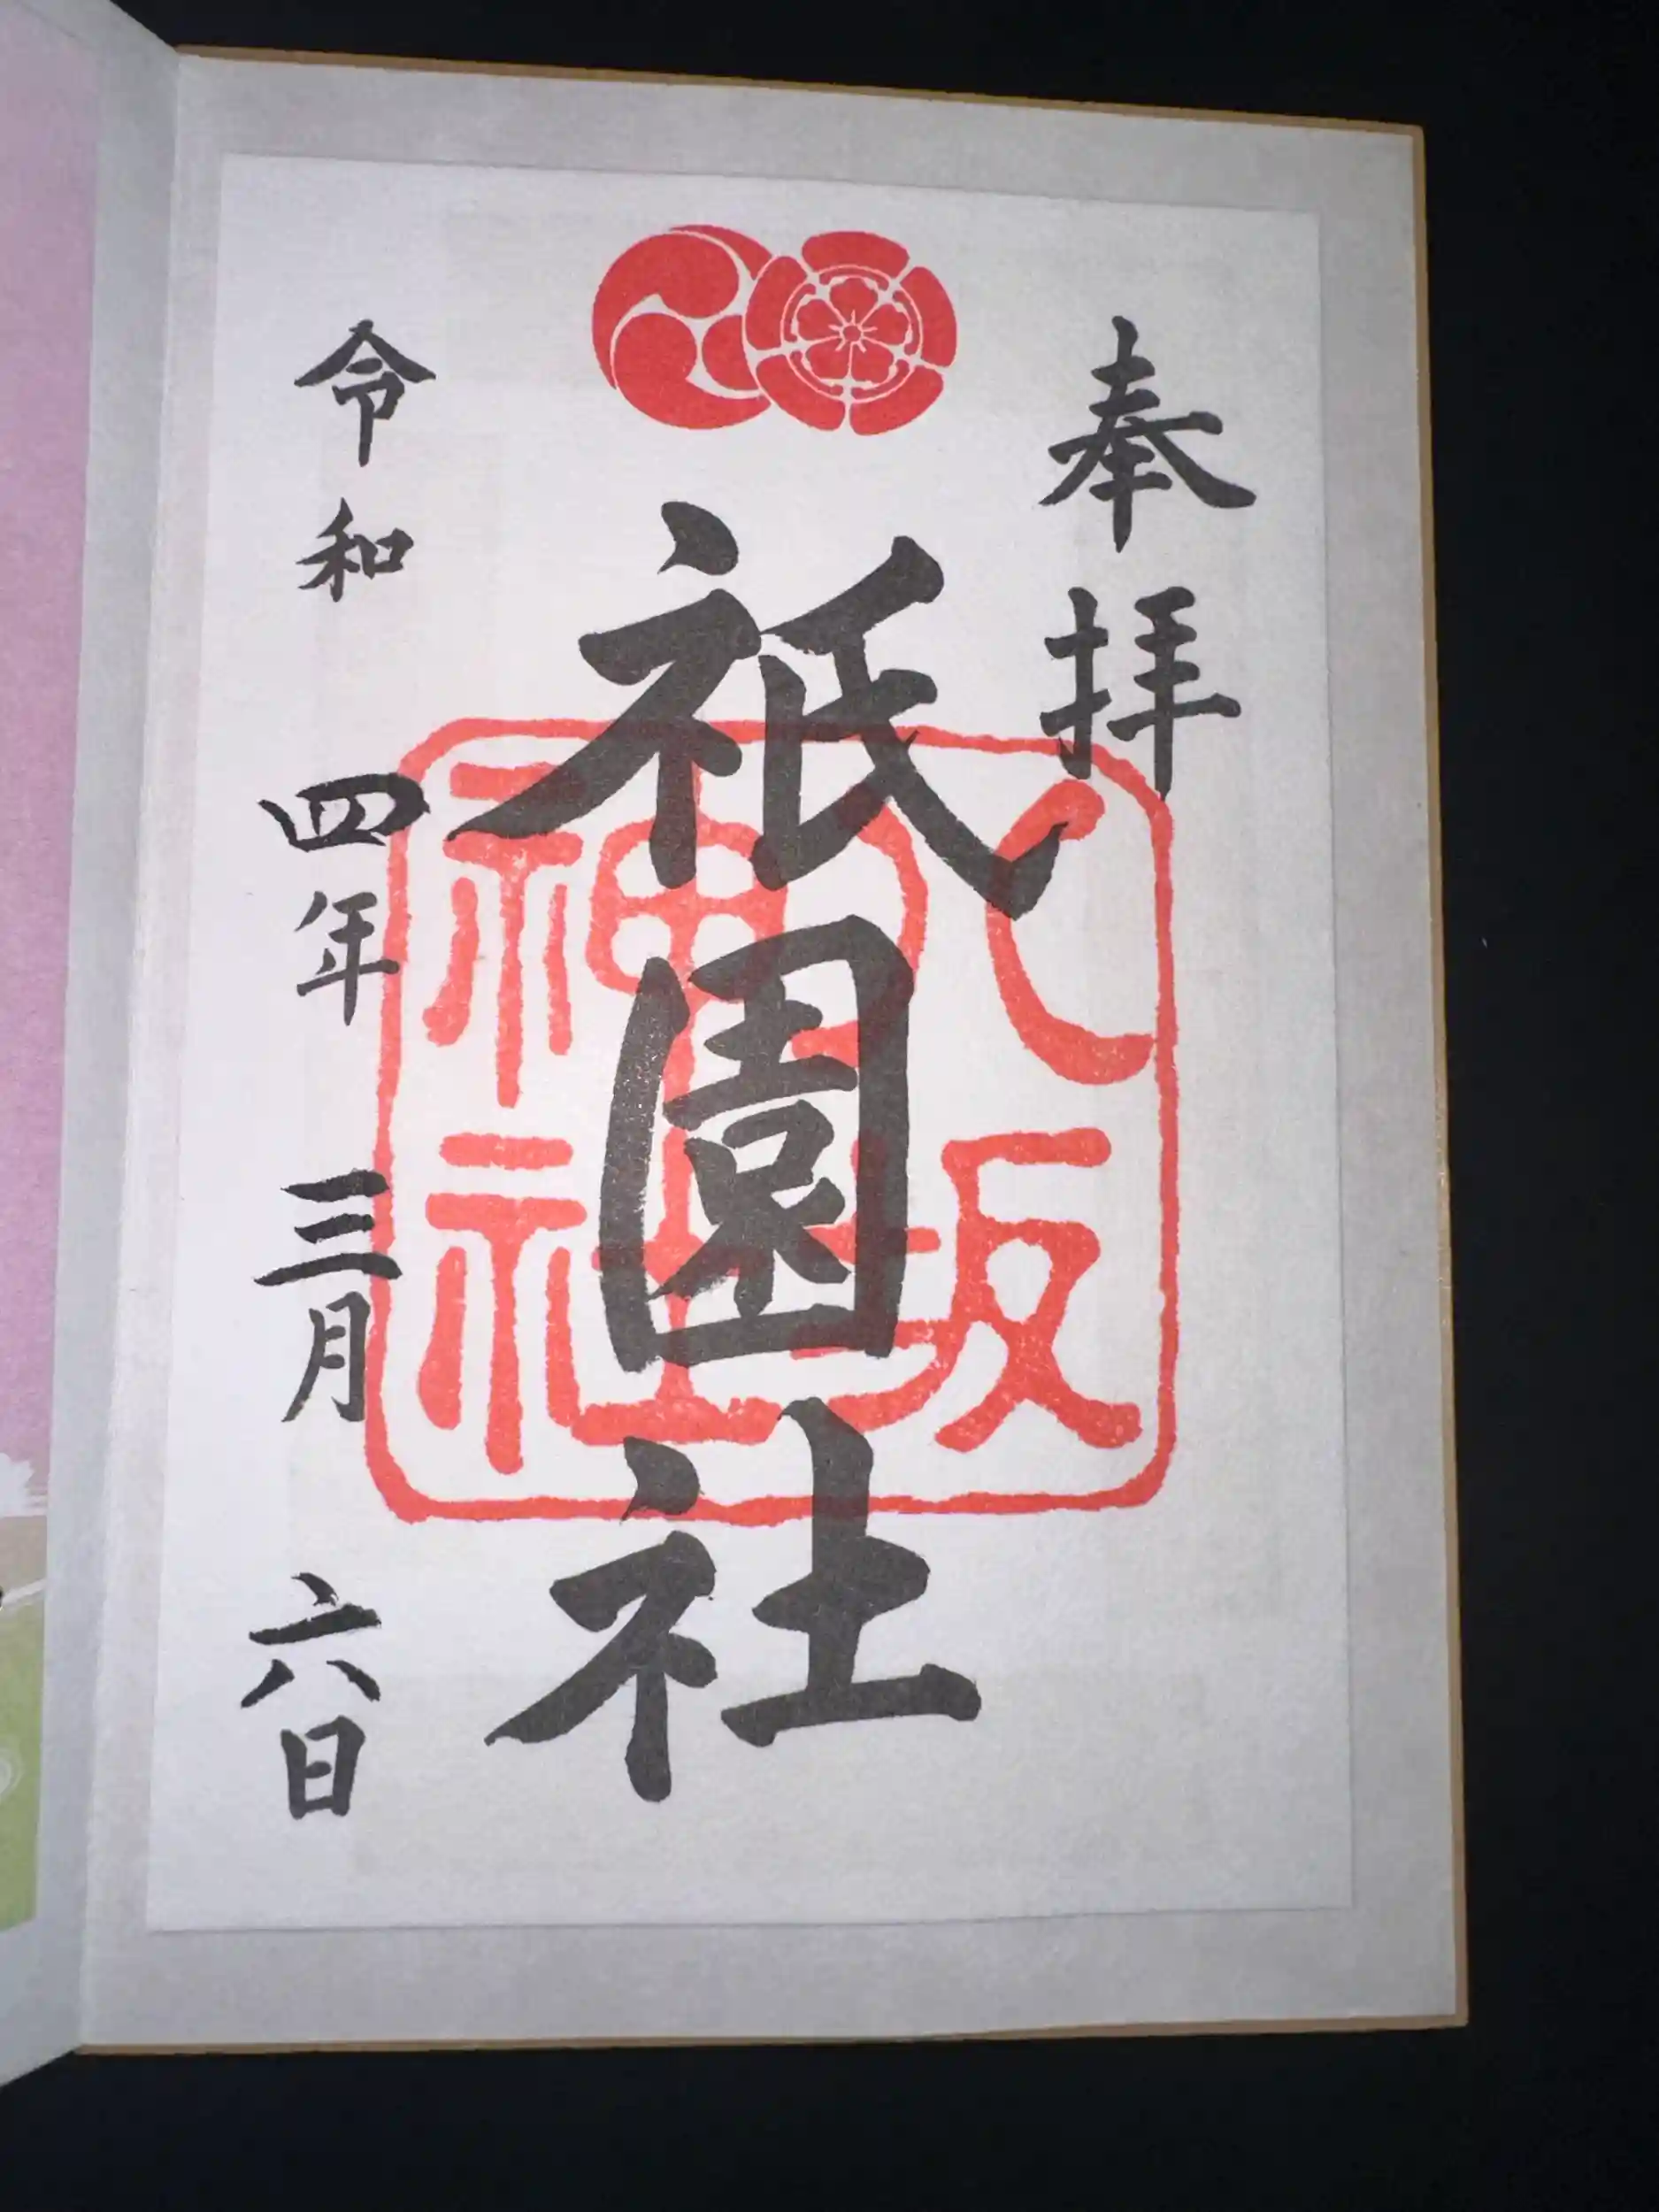 奉拝
祇園社
八坂神社
令和四年三月六日